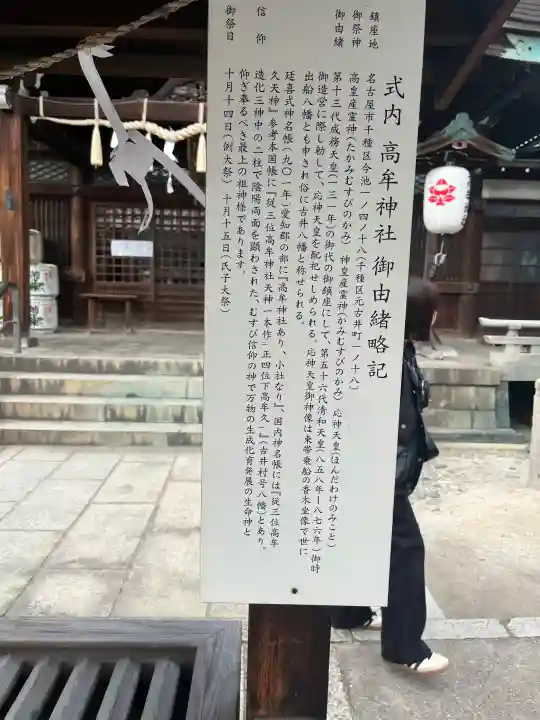 式内 高牟神社 御由緒略記
鎮座地 名古屋市千種区今池一ノ四ノ十八(千種区元古井町一ノ十八)
御祭神 高皇産霊神(たかみむすびのかみ) 神皇産霊神(かみむすびのかみ) 応神天皇(ほんだわけのみこと)
御由緒 第十三代成務天皇(一三一年)の御代の御鎮座にして、第五十六代清和天皇(八五八年ー八七六年)御時
御造営に際し勅して、応神天皇を配祀せしめられる。応神天皇御神像は束帯乗船の香木坐像で世に
出船八幡とも申され俗に古井八幡と称せられる。
延喜式神名帳(九〇一年)愛知郡の部に『高牟神社あり、小社なり』、国内神名帳には『従三位高牟
久天神』参考本国帳に『従三位高牟神社天神一本作二正四位下高牟久一』(古井村号八幡)とあり。
信仰 造化三神中の二柱で陰陽両面を顕わされた、むすび信仰の神で万物の生成化育発展の生命神と
仰ぎ奉るべき最上の祖神様であります。
御祭日 十月十四日(例大祭) 十月十五日(氏子大祭)